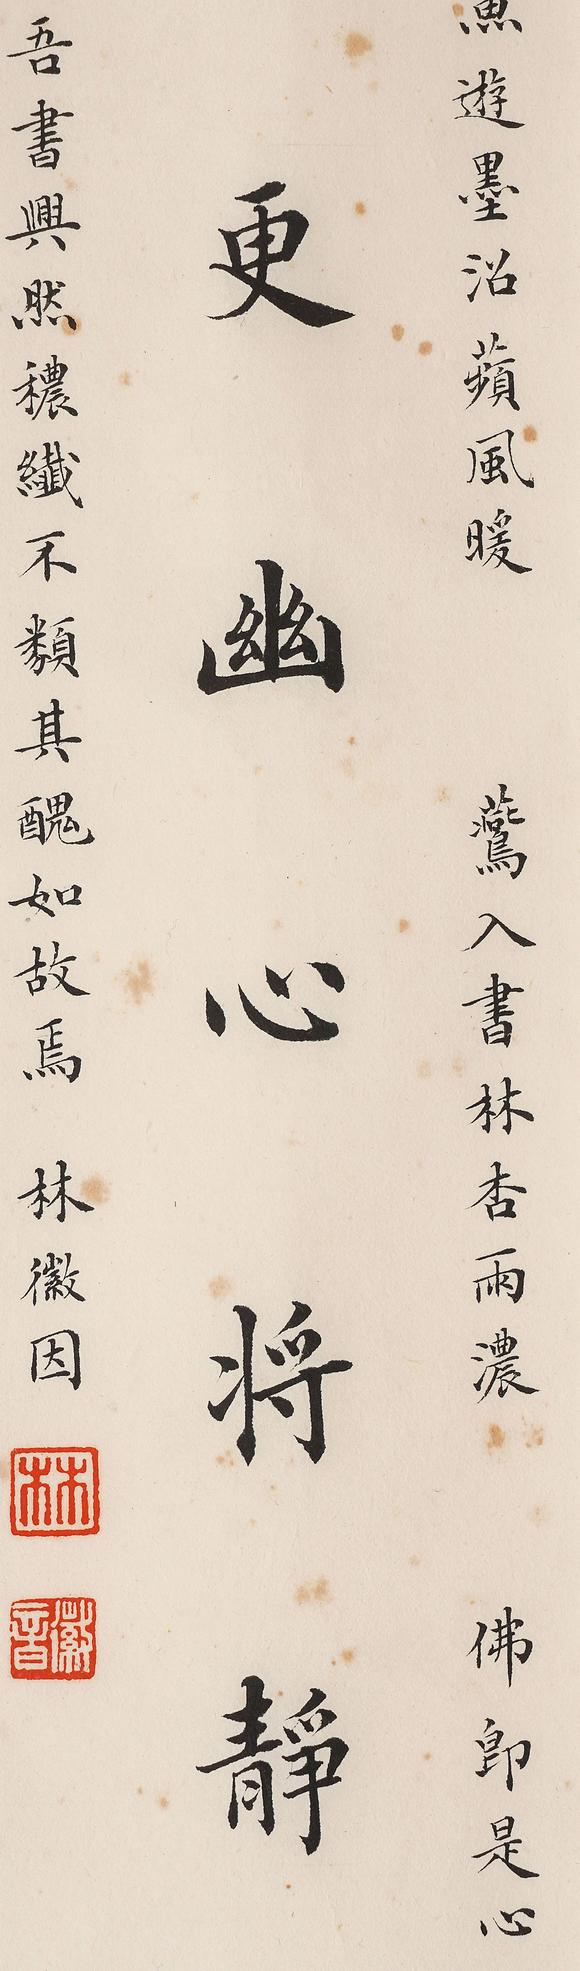 魚遊墨沼蘋風暖 鷰入書林杏雨濃 佛即是心
更幽心將靜
吾書興然穠纖不類其醜如故焉 林徽因
林
徽音